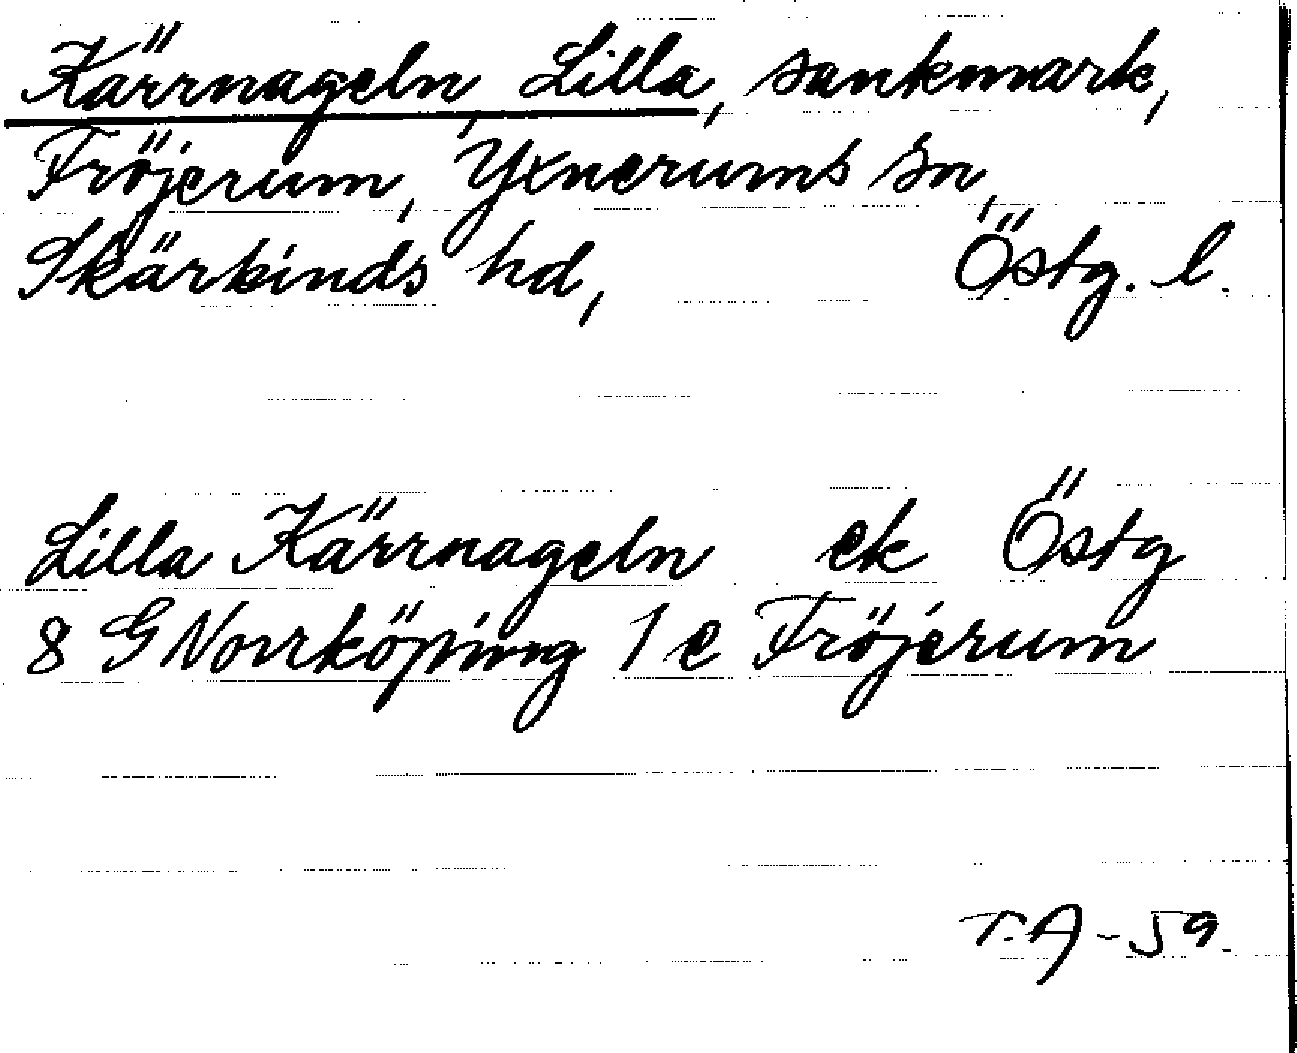 Kärrnageln, Lilla, sankmark,
Fröjerum, Yxnerums sn,
Skärkinds hd, Östg. l.
Lilla Kärrnageln ek Östg
8 G Norrköping 1 e Fröjerum
T.A-59.